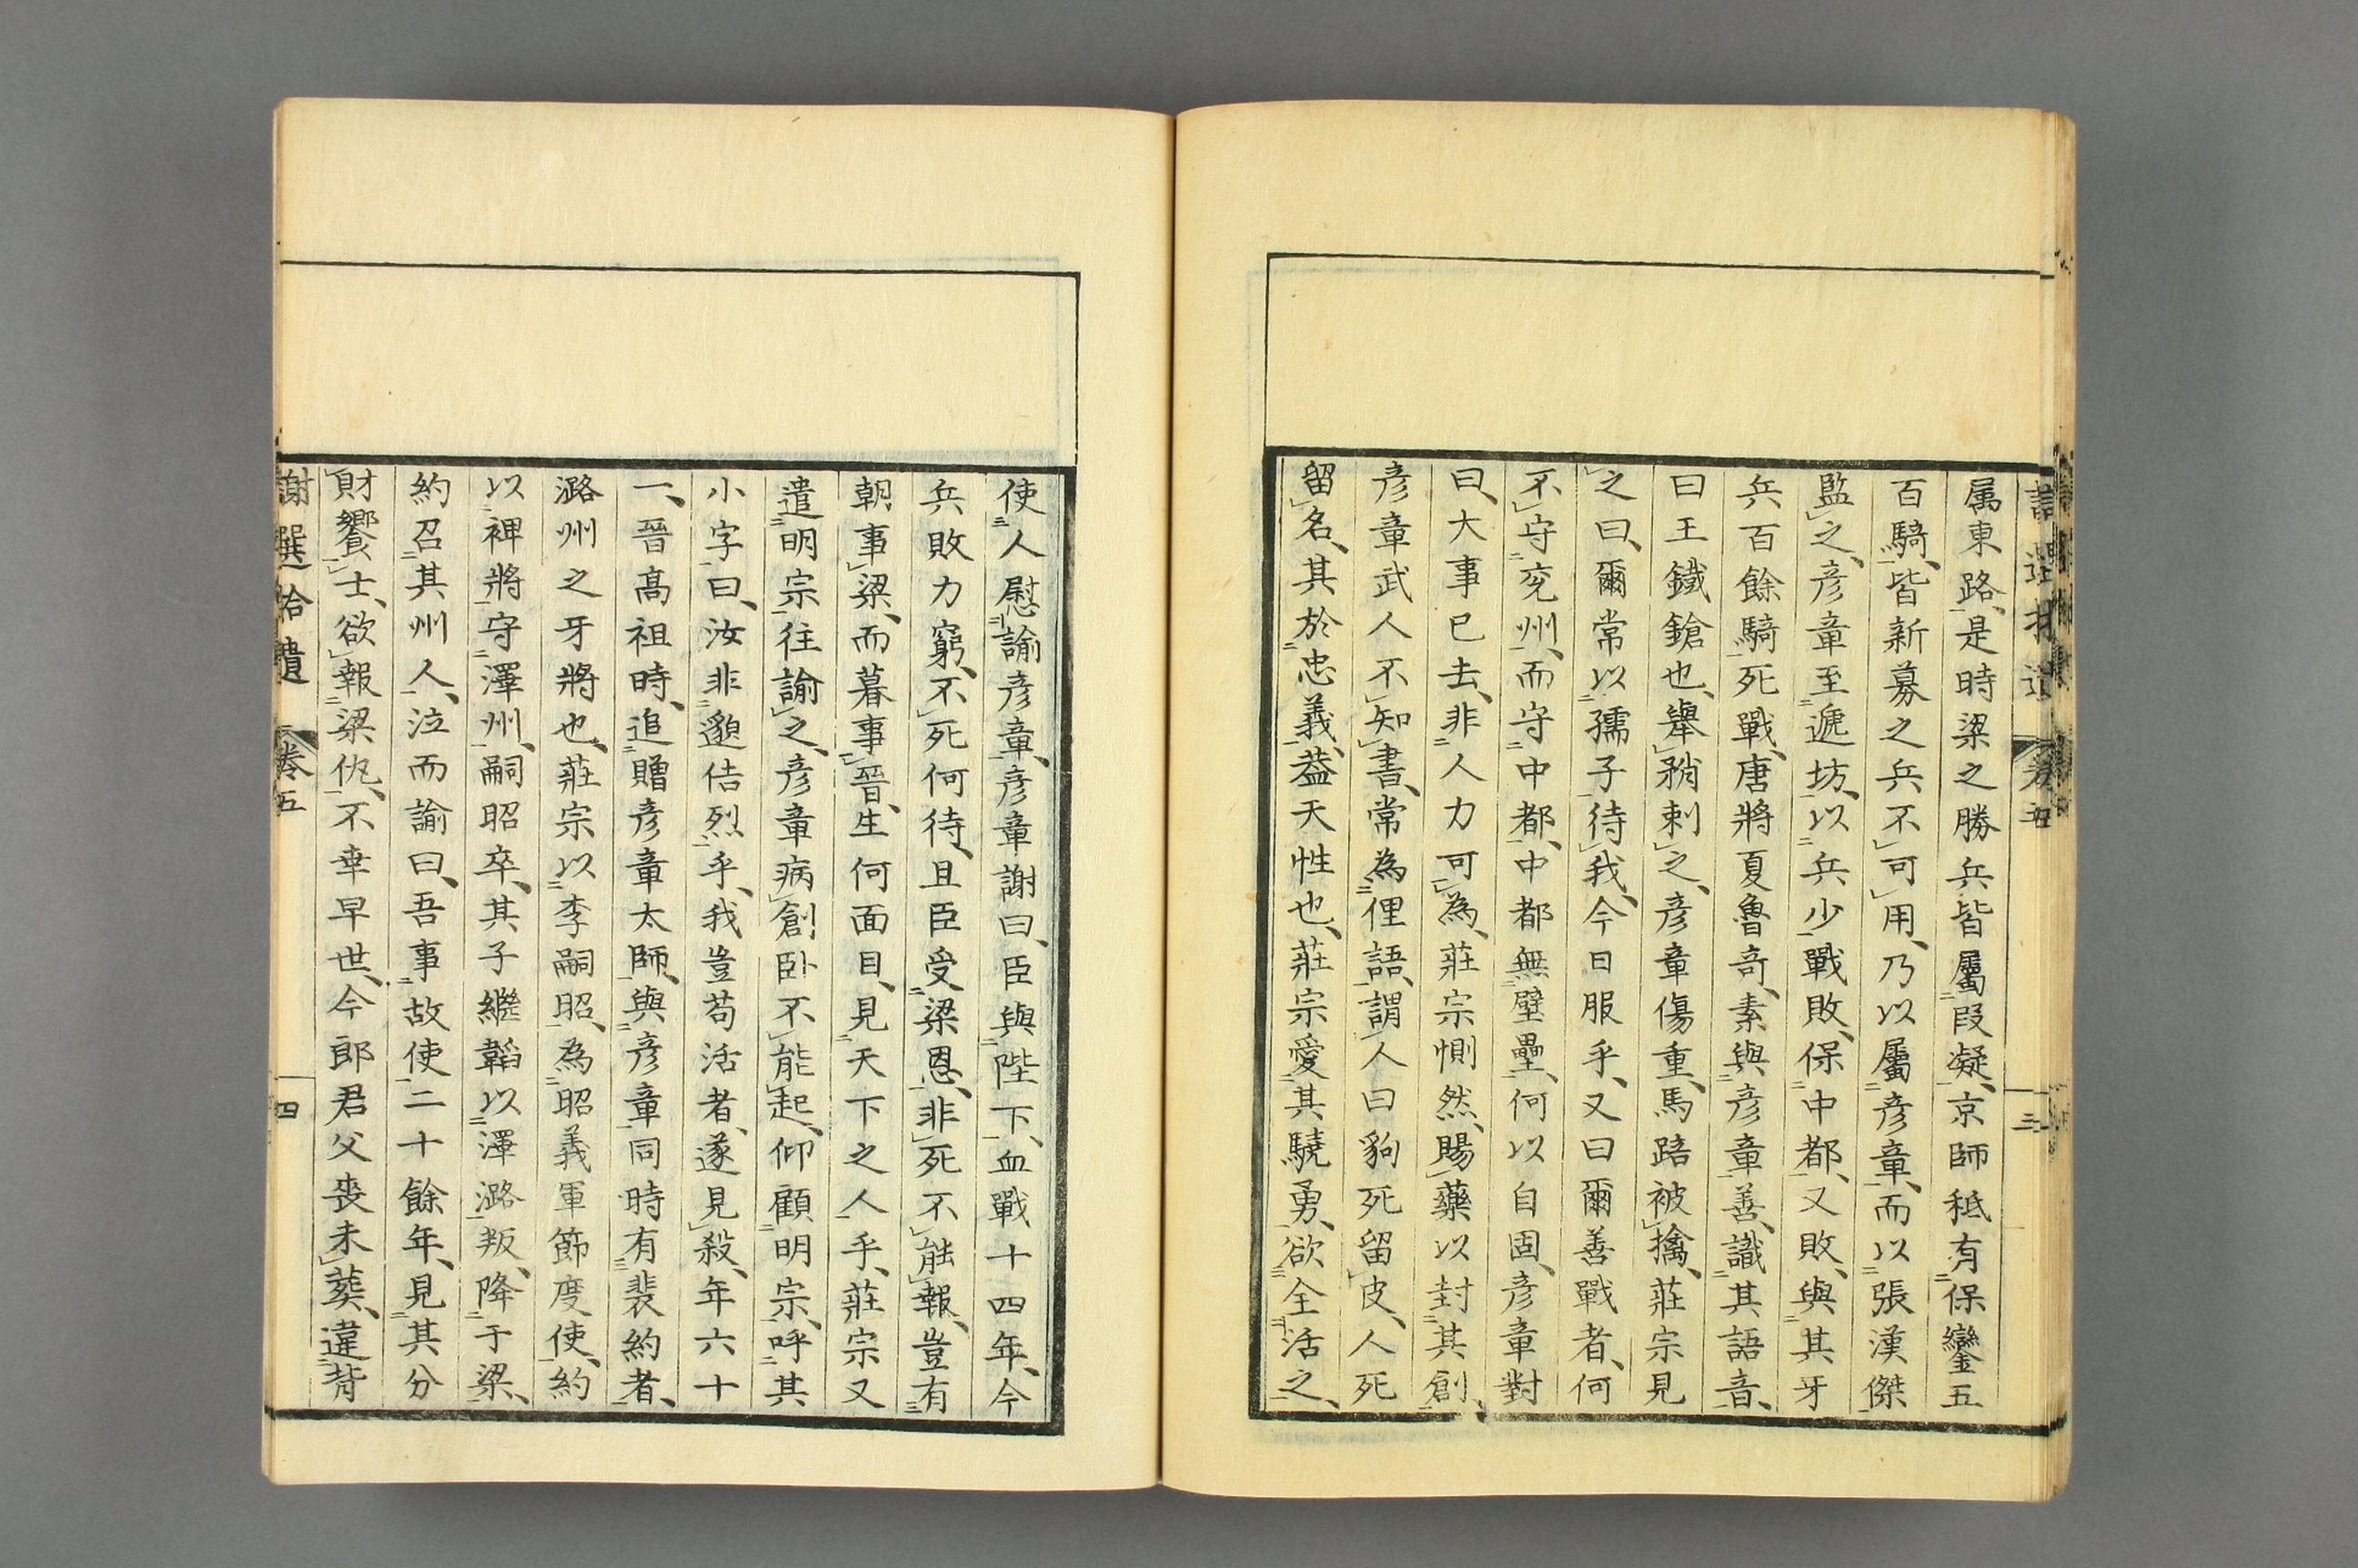 属東路、是時梁之勝兵皆屬段凝、京師秪有保鑾五
百騎、皆新募之兵不可用、乃以屬彦章、而以張漢傑
監之、彦章至遞坊、以兵少戰敗、保中都、又敗、與其牙
兵百餘騎死戰、唐將夏魯奇、素與彦章善、識其語音、
曰王鐵鎗也、舉矟刺之、彦章傷重、馬踣被擒、莊宗見
之曰、爾常以孺子待我、今日服乎、又曰爾善戰者、何
不守兖州、而守中都、中都無壁壘、何以自固、彦章對
曰、大事已去、非人力可為、莊宗惻然、賜藥以封其創、
彦章武人不知書、常為俚語、謂人曰豹死留皮、人死
留名、其於忠義、葢天性也、莊宗愛其驍勇、欲全活之、
使人慰諭彦章、彦章謝曰、臣與陛下、血戰十四年、今
兵敗力窮、不死何待、且臣受梁恩、非死不能報、豈有
朝事梁、而暮事晉、生何面目、見天下之人乎、莊宗又
遣明宗往諭之、彦章病創卧不能起、仰顧明宗、呼其
小字曰、汝非邈佶烈乎、我豈苟活者、遂見殺、年六十
一、晉髙祖時、追贈彦章太師、與彦章同時有裴約者、
潞州之牙將也、莊宗以李嗣昭、為昭義軍節度使、約
以裨將守澤州、嗣昭卒、其子繼韜以澤潞叛、降于梁、
約召其州人、泣而諭曰、吾事故使二十餘年、見其分
財饗士、欲報梁仇、不幸早世、今郎君父喪未葬、違背
謝選拾遺 卷五 四